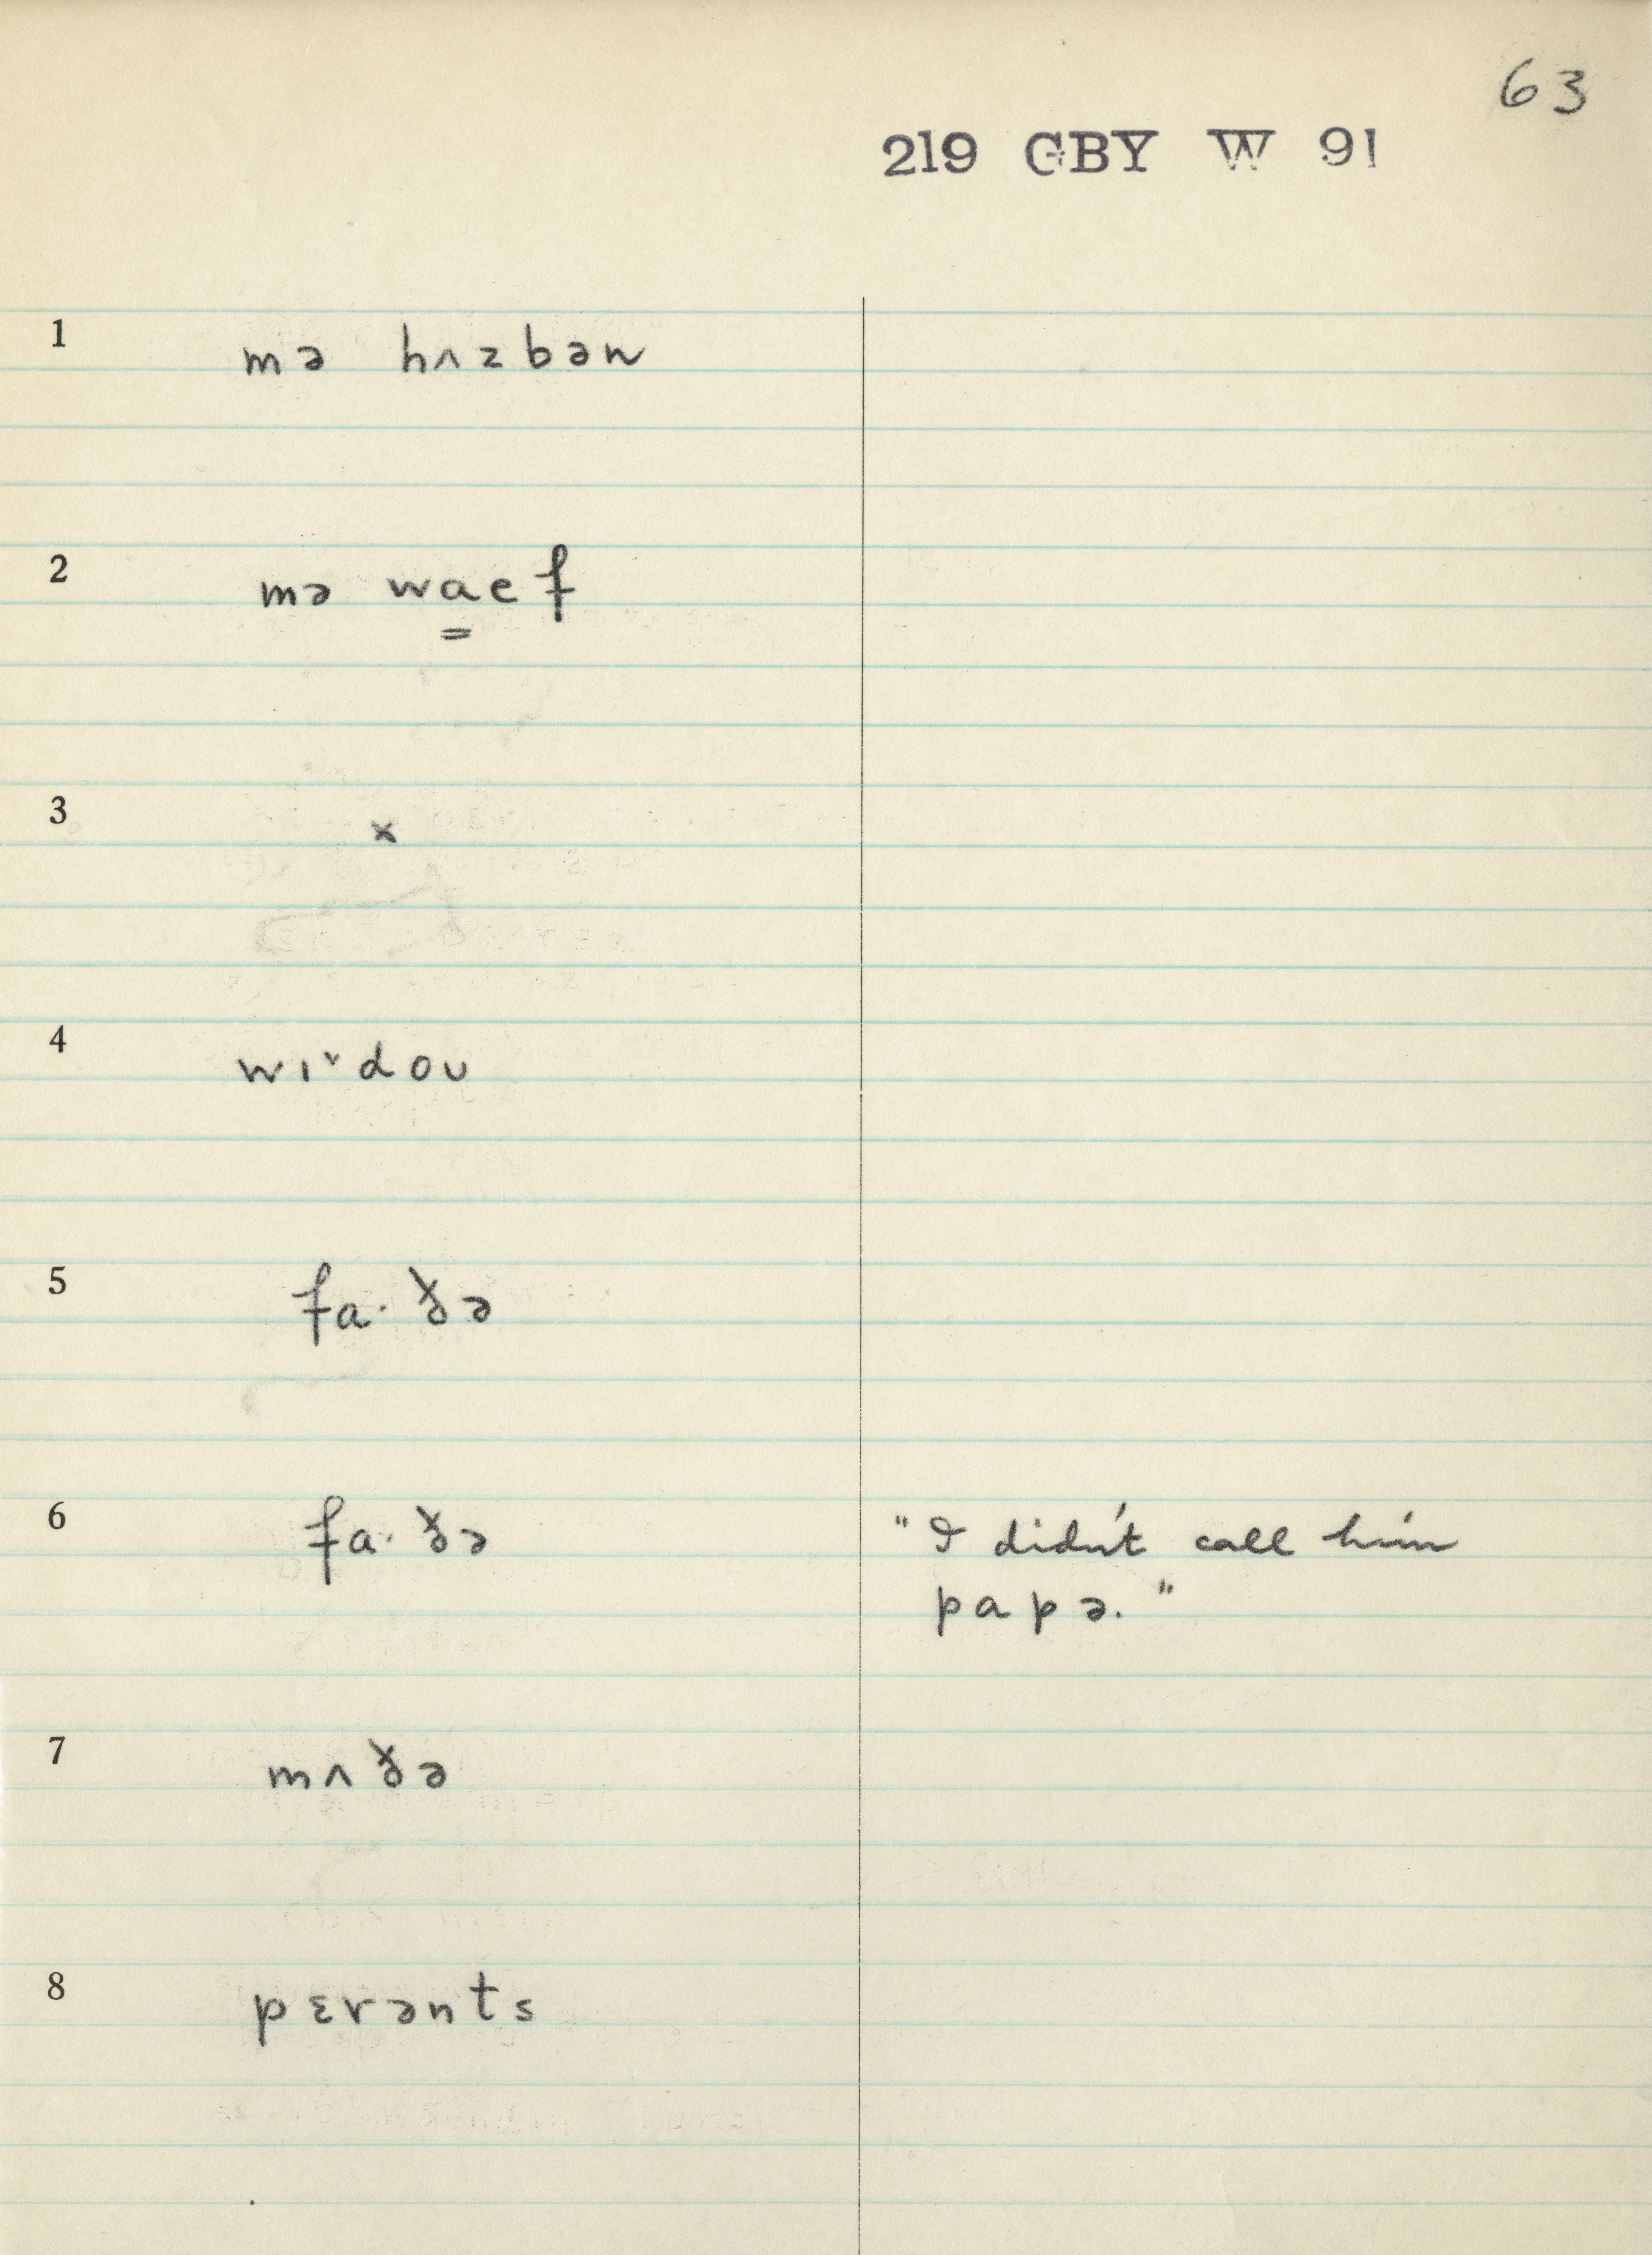 63
219 GBY W 91
1 mə hʌzbən
2 mə wa̳ef
3 x
4 wɪˇdoʊ
5 fa·ðə
6 fa·ðə "I didn't call him
papə."
7 mʌðə
8 pɛrənts